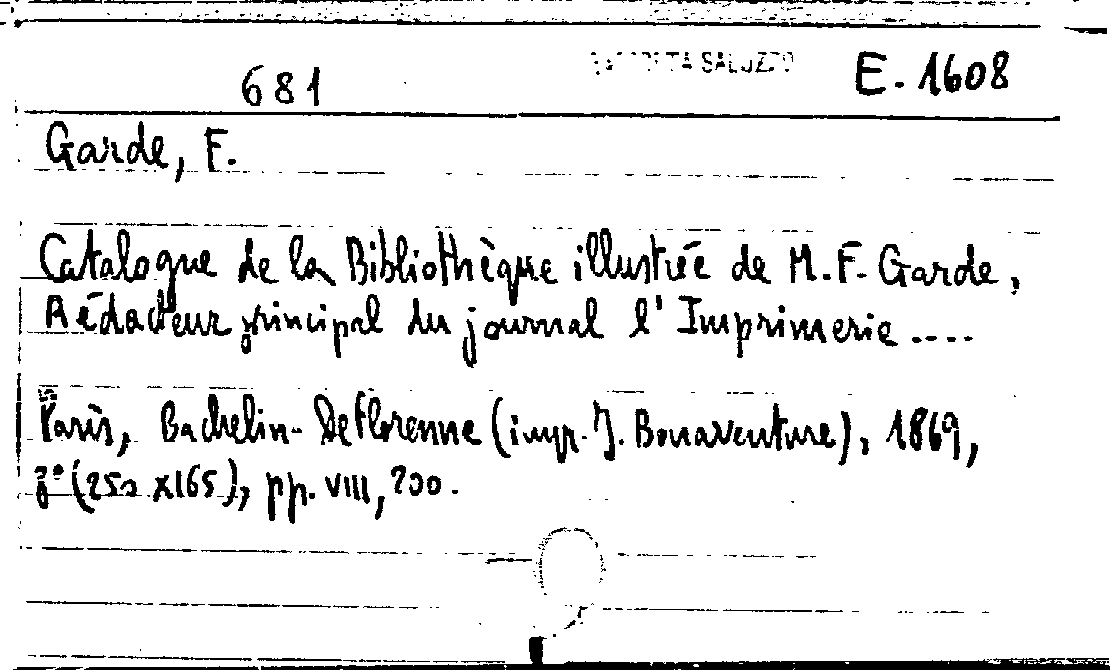 681 RACCOLTA SALUZZO E. 1608
Garde, F.
Catalogue de la Bibliothèque illustrée de M. F. Garde,
Rédacteur principal du journal l'Imprimerie ....
Paris, Bachelin-Deflorenne (impr. J. Bonaventure), 1869,
8° (250 x165), pp. VIII, 200.